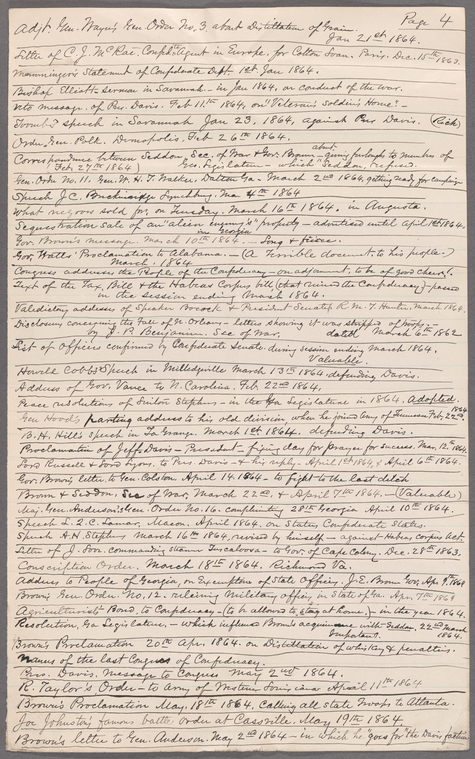 Page 4
Adjt. Gen. Wayne's Gen. Order No. 3. about Distillation of Grain.
Jan 21st 1864.
Letter of C. J. McRae. Confed. Agent in Europe, for Cotton Loan. Paris. Dec. 15th 1863.
Memminger's Statement of Confederate Debt. 1st Jan 1864.
Bishop Elliott - sermon in Savannah - in Jan 1864, on conduct of the war.
Veto message, of Pres. Davis. Feb. 11th 1864, on "Veteran Soldiers Home".-
Toombs' speech in Savannah Jan 23, 1864, against Pres Davis. (Rich)
Order Gen. Polk. Demopolis. Feb 26th 1864.
Correspondence between Seddon, Sec. of War & Gov. Brown - about giving furloughs to members of
Feb. 27th 1864) Geo. Legislature - which Seddon refused.
Gen. Order No. 11. Gen. W. H. T. Walker. Dalton Ga - March 2nd 1864, getting ready for campaign
Speech J. C. Breckinridge Lynchburg Va 4th 1864
What negroes sold for, on Tuesday. March 16th 1864. in Augusta.
Sequestration Sale of an "alien enemy's" property - advertised until April 1st 1864.
in Georgia
Gov. Brown's message. March 10th 1864. - Long & fierce.
Gov. Watts' Proclamation to Alabama. - (A terrible document to his people.)
March. 1864
Congress addresses the People of the Confederacy - on adjournment, to be of good cheer!.
Text of the Tax Bill & the Habeas Corpus bill (that ruined the Confederacy) - passed
in the session ending March 1864.
Valedictory address of Speaker Bocock & President Senate, R. M. T. Hunter. March 1864.
Disclosures concerning the Fall of N. Orleans - letters showing it was stripped of troops -
by J. P. Benjamin. Sec of War. dated March 6th 1862
List of Officers confirmed by Confederate Senate. during session ending March 1864.
Valuable.
Howell Cobb's Speech in Milledgeville March 13th 1864 defending Davis.
Address of Gov. Vance to N. Carolina. Feb. 22nd 1864.
Peace resolutions of Linton Stephens - in the Ga Legislature in 1864. Adopted.
Gen Hood's parting address to his old division when he joined army of Tennessee Feb. 22nd 1864
B. H. Hill's speech in La Grange. March 1st 1864. defending Davis.
Proclamation of Jeff. Davis - President - fixing day for Prayer for success. Mar. 12th 1864.
Lord Russell & Lord Lyons. to Pres. Davis - & his reply - April 1st 1864, & April 6th 1864.
Gov. Brown letter to Gen. Colston. April 14. 1864 - to fight to the last ditch
Brown & Seddon, Sec of War, March 22nd, & April 7th 1864. - (Valuable)
Maj. Gen. Anderson's Gen. Order No. 16. complimenting 28th Georgia April 10th 1864.
Speech L. Q. C. Lamar, Macon. April 1864. on Status Confederate States.
Speech A. H. Stephens March 16th 1864, revised by himself - against - Habeas Corpus Act.
Letter of J. Low. commanding steamer Tuscaloosa - to Gov. of Cape Colony. Dec. 28th 1863.
Conscription Order. March 18th 1864. Richmond Va.
Address to People of Georgia, on Exemption of State Officers, J. E. Brown Gov. Apr. 9th 1864
Brown Gen. Order No. 12. relieving Military officers in State of Ga. Apr. 7th 1864
Agriculturist Bond, to Confederacy - (to be allowed to stay at home,) - in the year 1864.
Resolution, Ga Legislature, - which influenced Brown's acquiescence with Seddon. 22nd March
Important. 1864.
Brown's Proclamation 20th Apr. 1864. on Distillation of whiskey & penalties.
Names of the last Congress of Confederacy.
Pres. Davis. Message to Congress May 2nd 1864.
R. Taylor's Order - to Army of Western Louisiana April 11th 1864
Brown's Proclamation May. 18th 1864. calling all State troops to Atlanta.
Joe Johnston's famous battle order at Cassville. May 19th 1864.
Brown's letter to Gen. Anderson. May 2nd 1864 - in which he "goes for" the Davis faction